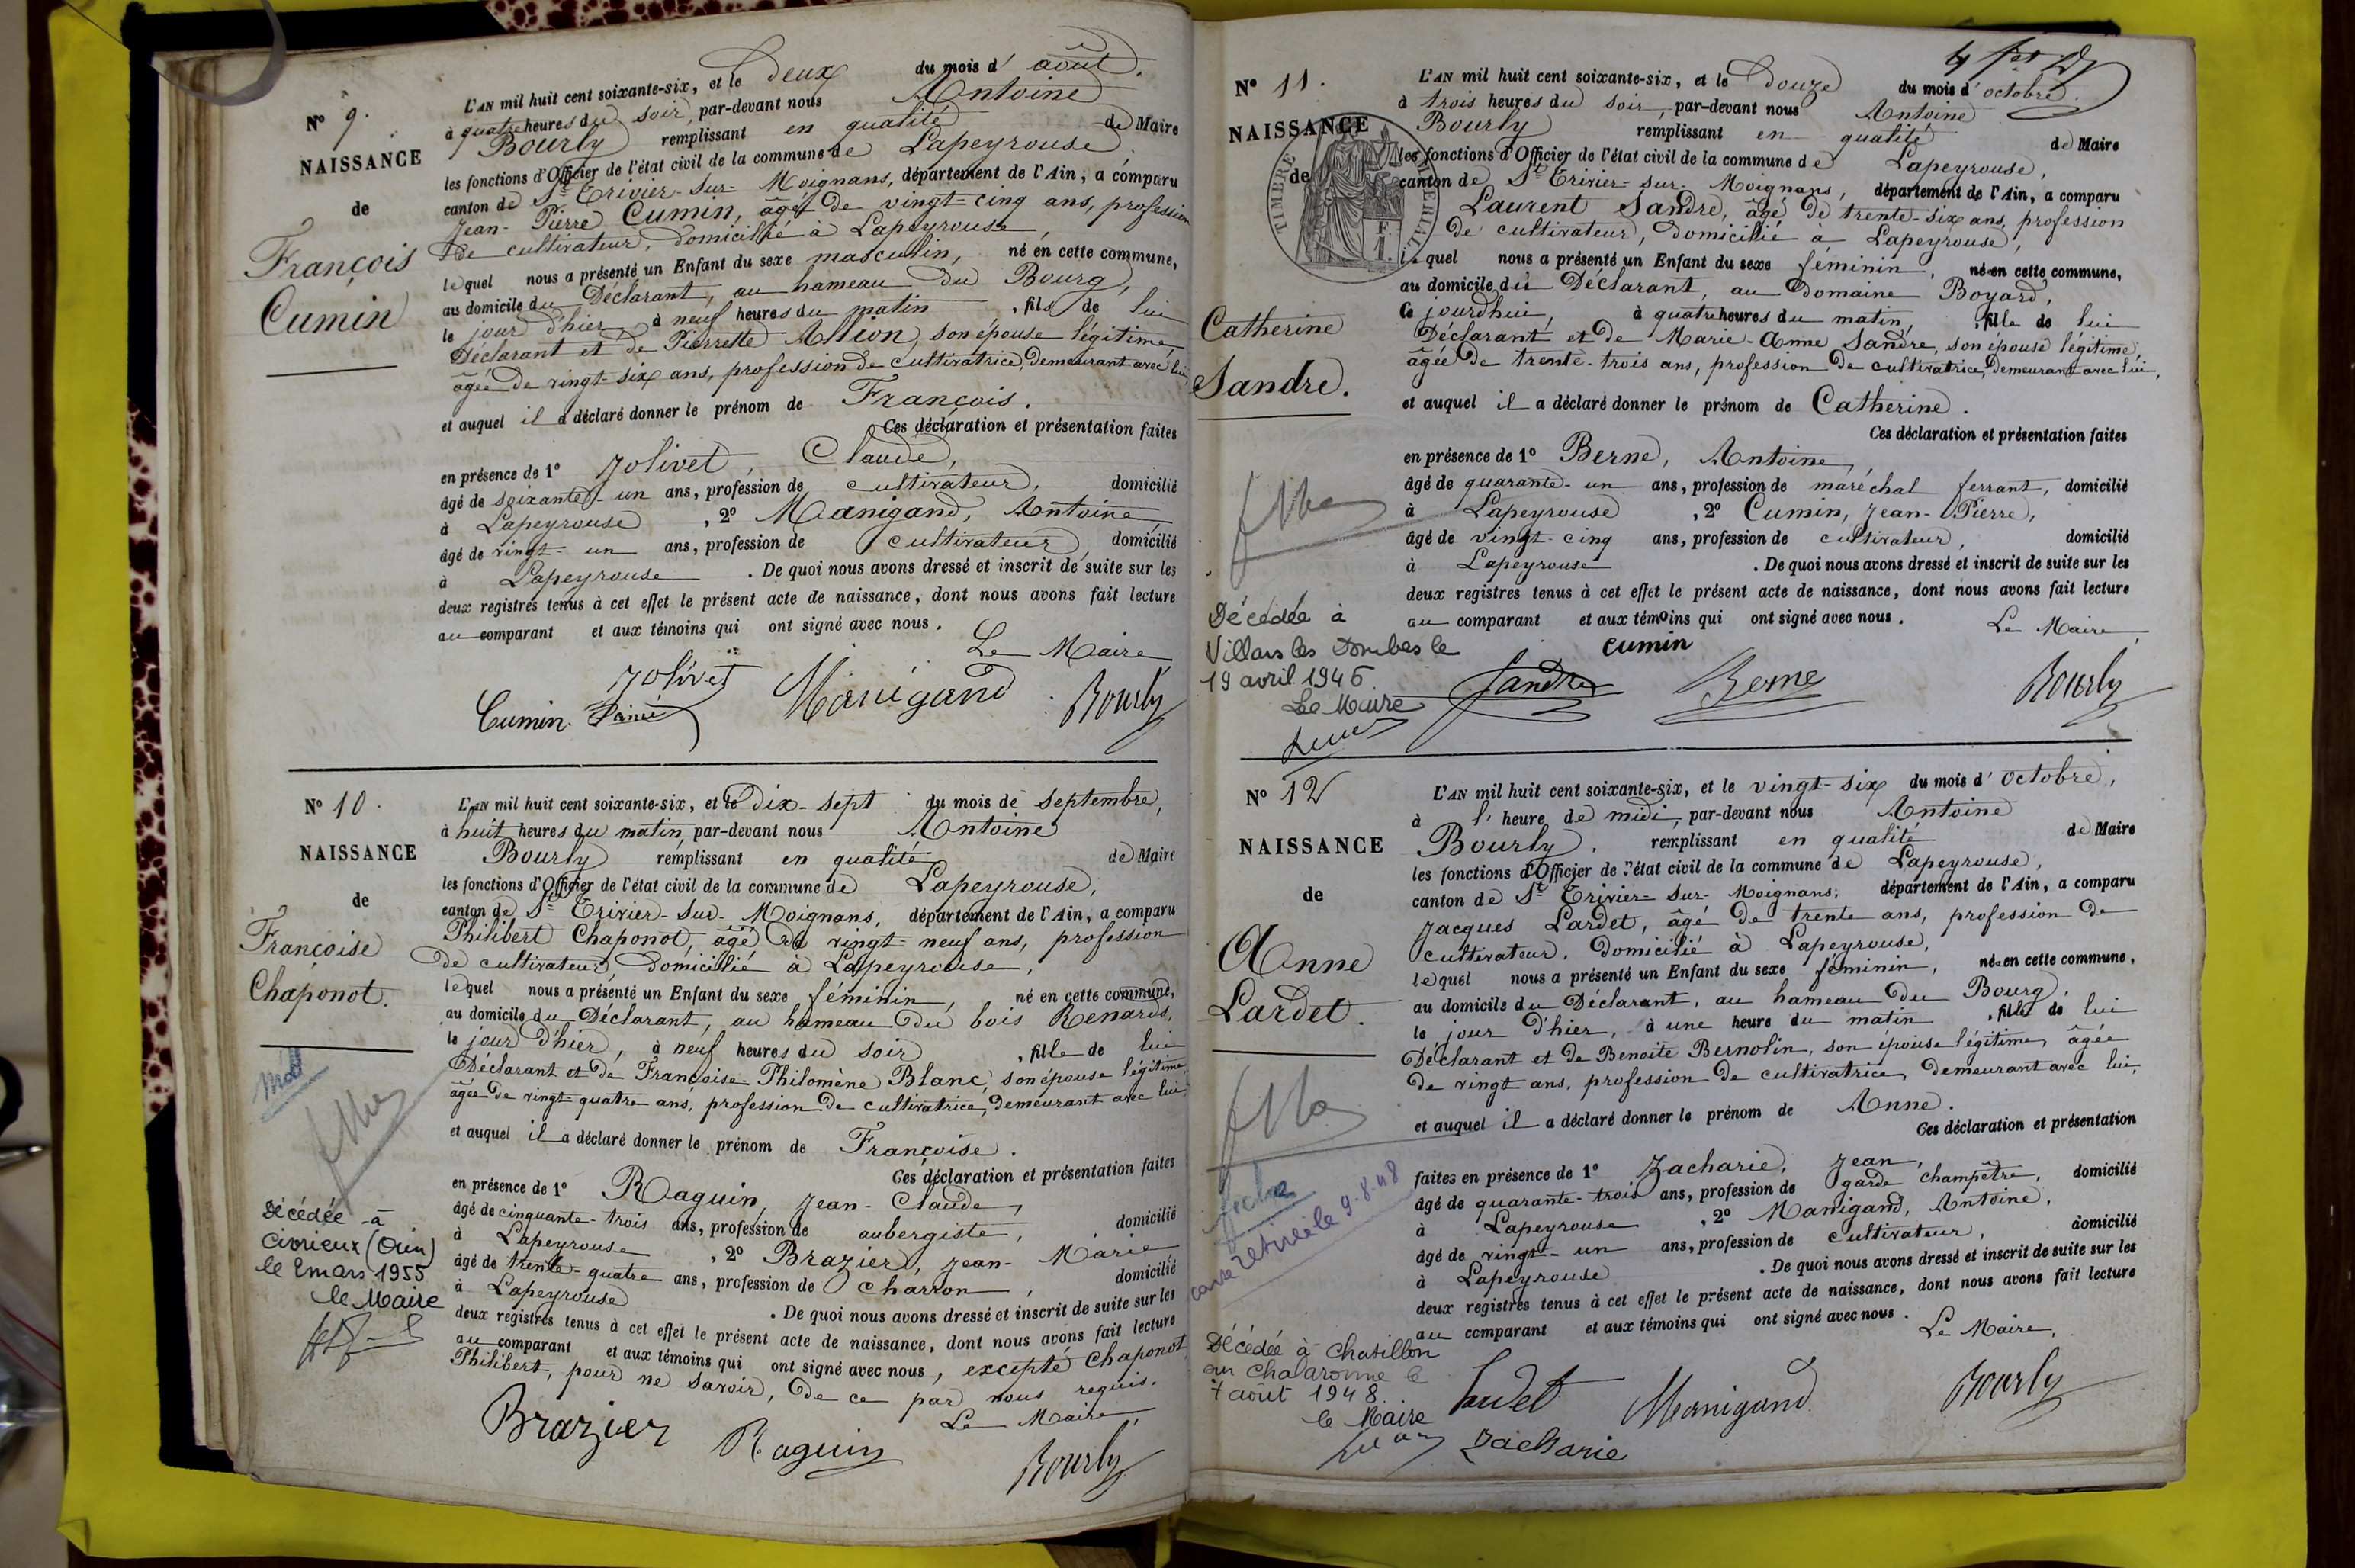 N° 9.
NAISSANCE
de
François
Cumin
L'AN mil huit cent soixante-six, et le Deux du mois d'août.
à quatre heures du soir, par-devant nous Antoine
Bourly remplissant en qualité de Maire
les fonctions d'Officier de l'état civil de la commune de Lapeyrouse,
canton de St Trivier-sur-Moignans, département de l'Ain, a comparu
Jean-Pierre Cumin, âgé de vingt-cinq ans, profession
de cultivateur, domicilié à Lapeyrouse,
lequel nous a présenté un Enfant du sexe masculin, né en cette commune,
au domicile du Déclarant, au hameau du Bourg,
le jour d'hier, à neuf heures du matin, fils de lui
Déclarant et de Pierrette Allion, son épouse légitime,
âgée de vingt-six ans, profession de cultivatrice, demeurant avec lui,
et auquel il a déclaré donner le prénom de François.
Ces déclaration et présentation faites
en présence de 1° Jolivet, Claude,
âgé de soixante-un ans, profession de cultivateur, domicilié
à Lapeyrouse, 2° Manigand, Antoine,
âgé de vingt-un ans, profession de cultivateur, domicilié
à Lapeyrouse. De quoi nous avons dressé et inscrit de suite sur les
deux registres tenus à cet effet le présent acte de naissance, dont nous avons fait lecture
au comparant et aux témoins qui ont signé avec nous.
Le Maire
Jolivet
Cumin Pierre Manigand Bourly
N° 10.
NAISSANCE
de
Françoise
Chaponot.
Décédée à
Civrieux (Ain)
le 2 mars 1955
le Maire
L'AN mil huit cent soixante-six, et le Dix-sept du mois de septembre,
à huit heures du matin, par-devant nous Antoine
Bourly remplissant en qualité de Maire
les fonctions d'Officier de l'état civil de la commune de Lapeyrouse,
canton de St Trivier-sur-Moignans, département de l'Ain, a comparu
Philibert Chaponot, âgé de vingt-neuf ans, profession
de cultivateur, domicilié à Lapeyrouse,
lequel nous a présenté un Enfant du sexe féminin, né en cette commune,
au domicile du Déclarant, au hameau du bois Renards,
le jour d'hier, à neuf heures du soir, fille de lui
Déclarant et de Françoise-Philomène Blanc, son épouse légitime,
âgée de vingt-quatre ans, profession de cultivatrice, demeurant avec lui,
et auquel il a déclaré donner le prénom de Françoise.
Ces déclaration et présentation faites
en présence de 1° Raguin, Jean-Claude,
âgé de cinquante-trois ans, profession de aubergiste, domicilié
à Lapeyrouse, 2° Brazier, Jean-Marie
âgé de trente-quatre ans, profession de charron, domicilié
à Lapeyrouse. De quoi nous avons dressé et inscrit de suite sur les
deux registres tenus à cet effet le présent acte de naissance, dont nous avons fait lecture
au comparant et aux témoins qui ont signé avec nous, excepté Chaponot
Philibert, pour ne savoir, de ce par nous requis.
Le Maire
Brazier Raguin Bourly
N° 11.
NAISSANCE
de
TIMBRE IMPÉRIAL
Catherine
Sandre.
Décédée à
Villars les Dombes le
19 avril 1946
Le Maire
L'AN mil huit cent soixante-six, et le Douze du mois d'octobre.
à trois heures du soir, par-devant nous Antoine
Bourly remplissant en qualité de Maire
les fonctions d'Officier de l'état civil de la commune de Lapeyrouse,
canton de St Trivier-sur-Moignans, département de l'Ain, a comparu
Laurent Sandre, âgé de trente-six ans, profession
de cultivateur, domicilié à Lapeyrouse,
lequel nous a présenté un Enfant du sexe féminin, né en cette commune,
au domicile du Déclarant, au Domaine Boyard,
ce jourdhui, à quatre heures du matin, fille de lui
Déclarant et de Marie-Anne Sandre, son épouse légitime,
âgée de trente-trois ans, profession de cultivatrice, demeurant avec lui,
et auquel il a déclaré donner le prénom de Catherine.
Ces déclaration et présentation faites
en présence de 1° Berne, Antoine,
âgé de quarante-un ans, profession de maréchal ferrant, domicilié
à Lapeyrouse, 2° Cumin, Jean-Pierre,
âgé de vingt-cinq ans, profession de cultivateur, domicilié
à Lapeyrouse. De quoi nous avons dressé et inscrit de suite sur les
deux registres tenus à cet effet le présent acte de naissance, dont nous avons fait lecture
au comparant et aux témoins qui ont signé avec nous.
Le Maire,
cumin
Sandre Berne Bourly
N° 12
NAISSANCE
de
Anne
Lardet.
fiche
carte retirée le 9.8.48
Décédée à Chatillon
sur Chalaronne le
7 août 1948
le Maire
L'AN mil huit cent soixante-six, et le vingt-six du mois d'octobre,
à l'heure de midi, par-devant nous Antoine
Bourly, remplissant en qualité de Maire
les fonctions d'Officier de l'état civil de la commune de Lapeyrouse,
canton de St Trivier-sur-Moignans, département de l'Ain, a comparu
Jacques Lardet, âgé de trente ans, profession de
cultivateur, domicilié à Lapeyrouse,
lequel nous a présenté un Enfant du sexe féminin, né en cette commune,
au domicile du Déclarant, au hameau du Bourg,
le jour d'hier, à une heure du matin, fille de lui
Déclarant et de Benoite Bernolin, son épouse légitime, âgée
de vingt ans, profession de cultivatrice, demeurant avec lui,
et auquel il a déclaré donner le prénom de Anne.
Ces déclaration et présentation
faites en présence de 1° Zacharie, Jean,
âgé de quarante-trois ans, profession de garde champêtre, domicilié
à Lapeyrouse, 2° Manigand, Antoine,
âgé de vingt-un ans, profession de cultivateur, domicilié
à Lapeyrouse. De quoi nous avons dressé et inscrit de suite sur les
deux registres tenus à cet effet le présent acte de naissance, dont nous avons fait lecture
au comparant et aux témoins qui ont signé avec nous.
Le Maire,
Lardet Manigand Bourly
Zacharie